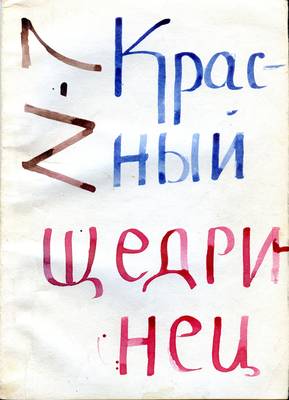 N-7
Крас-
ный
щедри-
нец